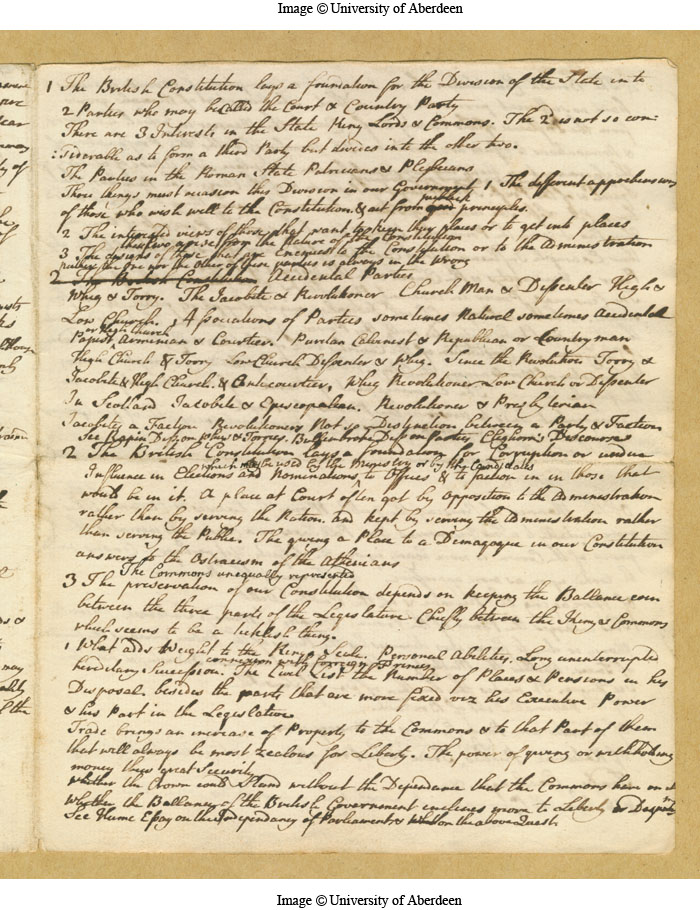 Image © University of Aberdeen
1 The British Constitution lays a foundation for the Division of the State into
2 Parties who may be Called the Court & Country Party
There are 3 Interests in the State King Lords & Commons. The 2d is not so con:
:siderable as to form a third Party but divides into the other two.
The Parties in the Roman State Patricians & Plebeians
Three things must occasion this Division in our Government 1 The different apprehensions
of those who wish well to the Constitution & act from principles.
2 The interested views of those that want to keep their places or to get into places
these two arise from the Nature of the Constitution
3 The designs of those that are Enemies to the Constitution or to the Administration
neither the one nor the other of these parties is always in the wrong
2 The British Constitution Accidental Parties
Whig & Torry. The Jacobite & Revolutioner Church Man & Dissenter High &
Low Church. Associations of Parties sometimes Natural sometimes Accidental
or High Church
Papist, Arminian & Courtier. Puritan Calvinist & Republican or Country man
High Church & Torry Low Church Dissenter & Whig. Since the Revolution Torry &
Jacobite & High Church. & Anticourtier, Whig Revolutioner Low Church or Dissenter
In Scotland Jacobite & Episcopalian. Revolutioner & Presbyterian
Jacobites a Faction Revolutioners Not so Distinction between a Party & Faction
See Rapin Diss on Whigs & Torrys. Bullenbroke Diss on Parties, Discourses
2 The British Constitution lays a foundation for Corruption or undue
which may be used by the Ministry or by the Candidates
Influence in Elections and Nominations to Offices & to faction in in those that
would be in it. A place at Court often got by opposition to the Administration
rather than by serving the Nation and kept by serving the Administration rather
than serving the Public. The giving a Place to a Demagogue in our Constitution
answers to the Ostracism of the Athenians
The Commons unequally represented
3 The preservation of our Constitution depends on keeping the Ballance even
between the three parts of the Legislature Chiefly between the King & Commons
which seems to be a ticklish thing.
1 What adds Weight to the Kings Scale. Personal Abilities, Long uninterrupted
connexion with Foreign Princes
hereditary Succession. The Civil List the Number of Places & Pensions in his
Disposal. besides the parts that are more fixed viz his Executive Power
& his Part in the Legislative
Trade brings an increase of Property to the Commons & to that Part of them
that will always be most zealous for Liberty. The power of giving or withholding
money their great Security
Whether the Crown could stand without the Dependance that the Commons have on it
Whether the Ballance of the British Government inclines more to Liberty or
See Hume Essay on the Independancy of Parliament & on the above Quest
Image © University of Aberdeen